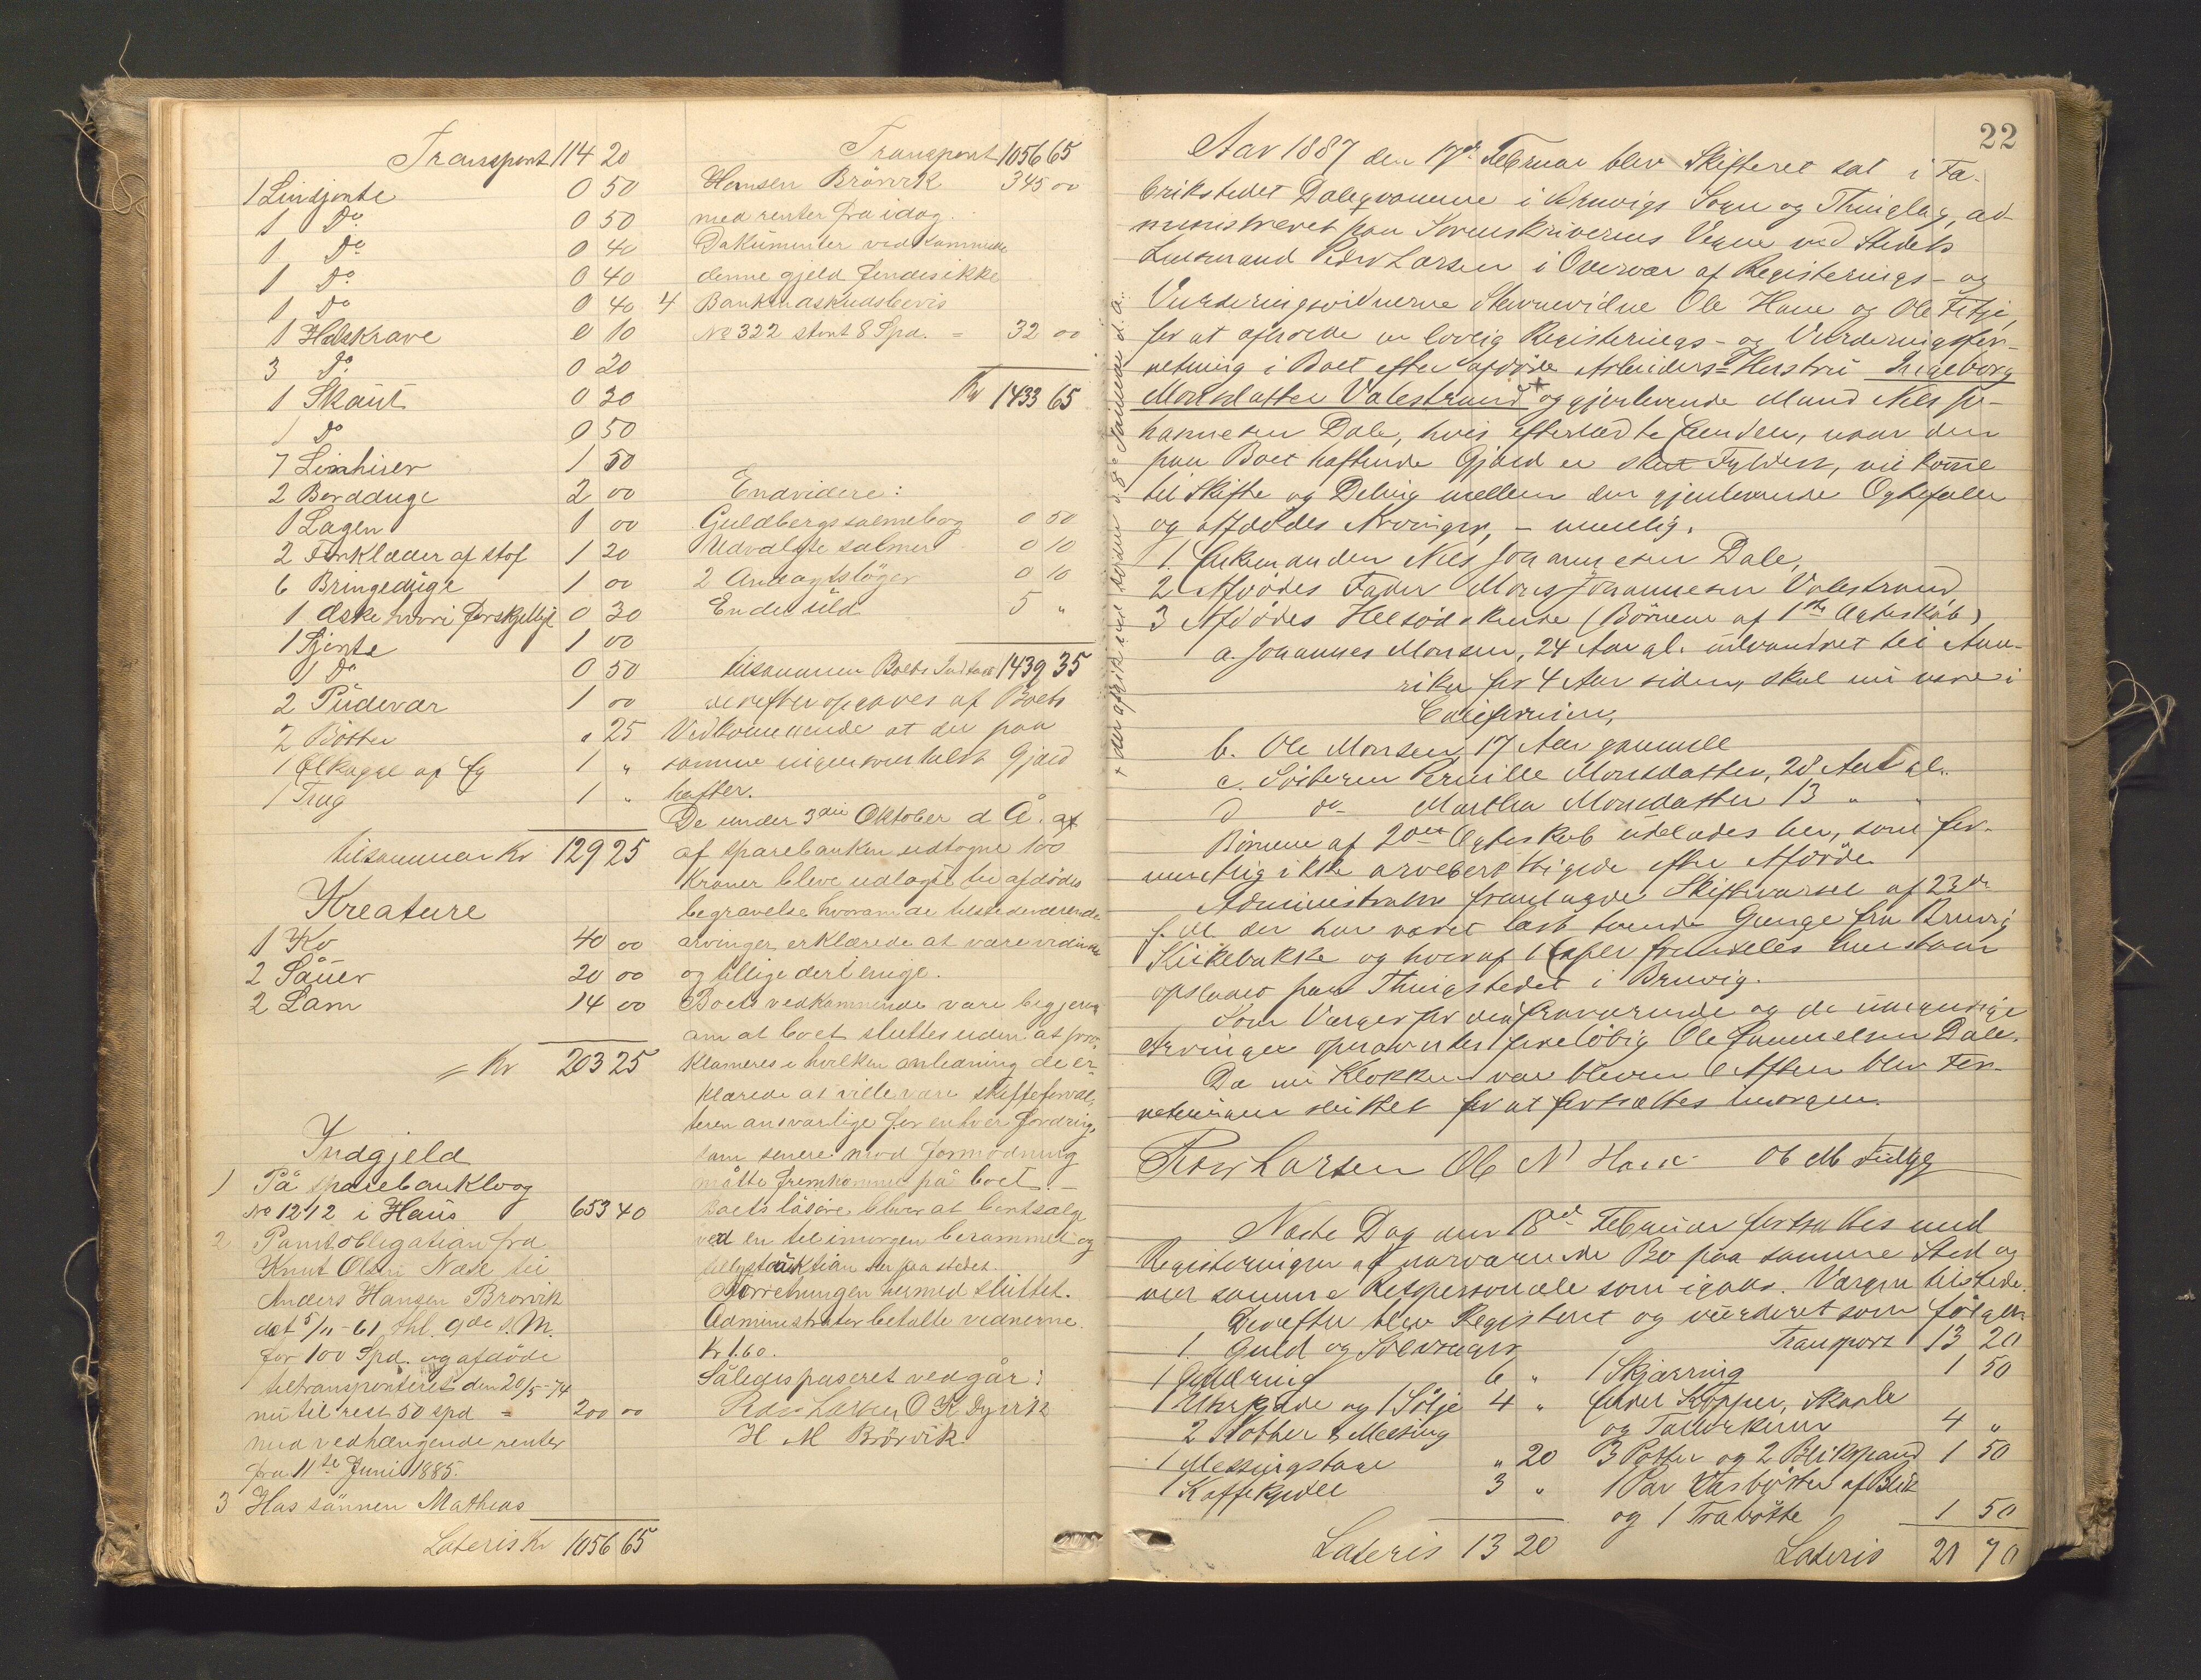 Transport 114 20
1 Lindjente 0 50
1 Do 0 50
1 Do 0 40
1 Do 0 40
1 Do 0 40
1 Halskrave 0 10
3 Do 0 20
1 Skaut 0 30
1 Do 0 50
7 Linhuer 1 50
2 Bordduge 2 00
1 Lagen 1 00
2 Forklæder af stof 1 20
6 Bringeduge 1 00
1 Æske hvori forskjelligt 0 30
1 Tjente 1 00
1 Do 0 50
2 Pudevar 1 00
2 Bøtter " 25
1 Ølkagge 1 "
1 Trug 1 "
tilsammen Kr 129 25
Kreature
1 Ko 40 00
2 Sauer 20 00
2 Lam 14 00
= Kr 203 25
Indgjeld
1) På sparebankbog
No 1212 i Haus 653 40
2 Pantobligation fra
Knut Olsen Næse til
Anders Hansen Brørvik
dat 5/11-61 thl. 9de s.M.
for 100 Spd. og afdøde
tiltransporteret den 20/5-74
nu til rest 50 spd = 200 00
med vedhængende renter
fra 11te Juni 1885.
3 Hos sønnen Mathias
Lateris Kr 1056 65
Transport 1056 65
Hansen Brørvik 345 00
med renter fra idag.
Dokumenter vedkommende
denne gjeld findes ikke
4 Bankindskudsbevis
No 322 stort 8 Spd. = 32 00
Kr 1433 65
Endvidere:
Guldbergs salmebog 0 50
Udvalgte salmer 0 10
2 Andagtsbøger 0 10
En del uld 5 "
tilsammen Boets Indtægt 1439 35
derefter opgaves af Boets
Vedkommende at der paa
samme ingensomhelst Gjæld
hafter.
De under 3die Oktober d Å. af
af sparebanken udtagne 100
Kroner bleve udlagt til afdødes
begravelse hvorom de tilstedeværende
arvinger erklærede at være vidende
og tillige dert enige.
Boets vedkommende vare begjerende
om at boet sluttes uden at pro-
klameres i hvilken anledning de er-
klærede at ville være skifteforval-
teren ansvarlige for enhver fordring,
som senere mod formodning
måtte fremkomme på boet. –
Boets løsøre bliver at bortsælge
ved en til imorgen berammet og
tillyst auktion her paa stedet.
Forretningen hermed sluttet.
Administrator betalte vidnerne.
Kr 1.60.
Således passeret vedgår:
Peder Larsen O K Dyvik
H M Brørvik
22
Aar 1887 den 17de Februar blev Skifteret sat i Fa-
brikstedet Daleqvamene i Bruvigs Sogn og Thinglag, ad-
ministreret paa Sorenskriverens Vegne ved Stedets
Lensmand Peder Larsen i Overvær af Registerings- og
Vurderingsvidnerne Stevnevidne Ole Hane og Ole Fitje,
for at afholde en lovlig Registerings- og Vurderingsfor-
retning i Boet efter afdøde Arbeiders Hustru Ingeborg
Monsdatter Valestrand + og gjenlevende Mand Nils Jo-
hannesen Dale, hvis efterladte Eiendele, naar den
paa Boet haftende Gjæld er sket Fyldest, vil komme
til Skifte og Deling mellem den gjenlevende Ægtefælle
og Afdødes Arvinger, – nemlig.
1. Enkemanden Nils Johannesen Dale,
2 Afdødes Fader Mons Johannesen Valestrand
3 Afdødes Helsødskende (Børnene af 1ste Ægteskab)
a. Johannes Monsen, 24 Aar gl. udvandret til Ame-
rika for 4 Aar siden, skal nu være i
Californien,
b. Ole Monsen, 17 Aar gammel
c. Søsteren Pernille Monsdatter, 28 Aar gl.
d do Martha Monsdatter 13 " "
Børnene af 2det Ægteskab udelades her, som for-
mentlig ikke arveberettigede efter Afdøde
Administrator fremlagde Skiftevarsel af 23de
f. M. der har været læst tvende Gange fra Bruvig
Kirkebakke og hvoraf 1 Expl. fremdeles henstaar
opslaaet paa Thingstedet i Bruvig.
Som Verger for den fraværende og de umyndige
Arvinger opnævntes foreløbig Ole Samuelsen Dale.
Da nu Klokken var bleven 6 Aften blev For-
retningen sluttet for at fortsættes imorgen.
Peder Larsen Ole N Hane Ole M Fitje
Næste Dag den 18de Februar fortsattes med
Registeringen af nærværende Bo paa samme Sted og
ved samme Retspersonale som igaar. Vergen tilstede.
Derefter blev Registeret og vurderet som følger
1. Guld og Sølvsager
1 Guldring 6 "
1 Uhrkjæde og 1 Sølje 4 "
2 Kobber & Messing
1 Messingstage " 20
1 Kaffekjedel 3 "
Lateris 13 20
Transport 13 20
1 Skjæring 1 50
Endel Kopper, Skaale
og Tallerkener 4 "
3 Potter og 2 Blikspand 1 50
1 Par Vasbøtter af Blik
og 1 Træbøtte 1 50
Lateris 21 70